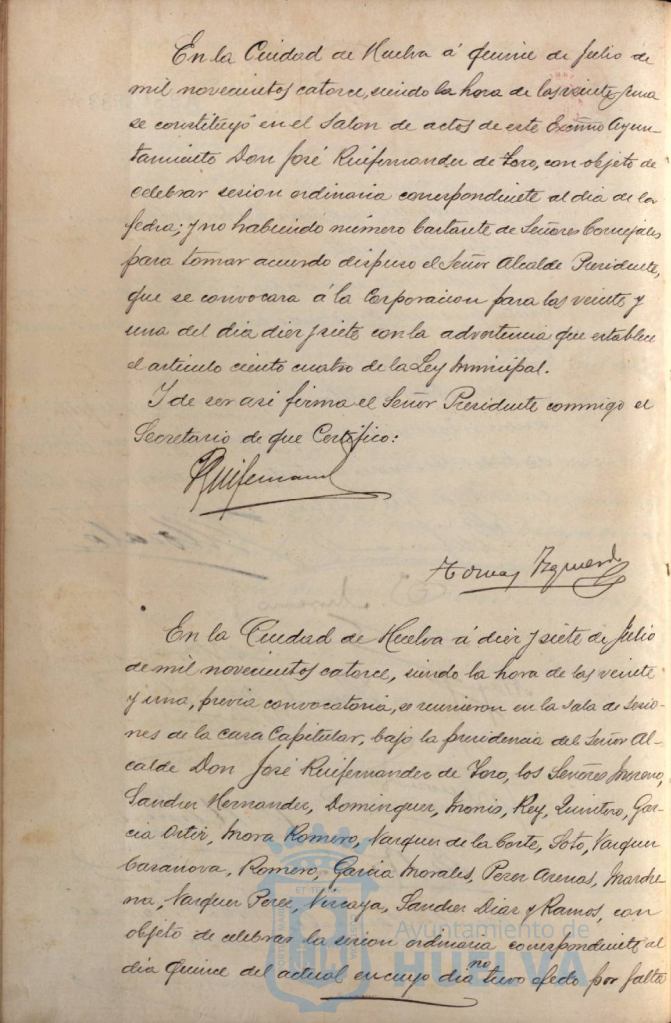 En la Ciudad de Huelva á quince de Julio de
mil novecientos catorce, siendo la hora de las veinte y una
se constituyó en el Salon de actos de este Excmo Ayun-
tamiento Don José Ruifernandez de Toro, con objeto de
celebrar sesion ordinaria correspondiente al dia de la
fecha; y no habiendo número bastante de Señores Concejales
para tomar acuerdo dispuso el Señor Alcalde Presidente,
que se convocara á la Corporacion para las veinte y
una del dia diez y siete con la advertencia que establece
el articulo ciento cuatro de la Ley Municipal.
Y de ser asi firma el Señor Presidente conmigo el
Secretario de que Certifico:
Ruifernand
Tomas Izquierdo
En la Ciudad de Huelva á diez y siete de Julio
de mil novecientos catorce, siendo la hora de las veinte
y una, previa convocatoria, se reunieron en la sala de sesio-
nes de la casa Capitular, bajo la presidencia del Señor Al-
calde Don José Ruifernandez de Toro, los Señores Moreno,
Sanchez Hernandez, Dominguez, Monis, Rey, Quintero, Gar-
cia Ortiz, Mora Romero, Vazquez de la Corte, Soto, Vazquez
Casanova, Romero, Garcia Morales, Perez Arenas, Marche-
na, Vazquez Perez, Vizcaya, Sanchez Diaz y Ramos, con
objeto de celebrar la sesion ordinaria correspondiente al
dia quince del actual en cuyo dia no tuvo efecto por falta
Ayuntamiento de
HUELVA